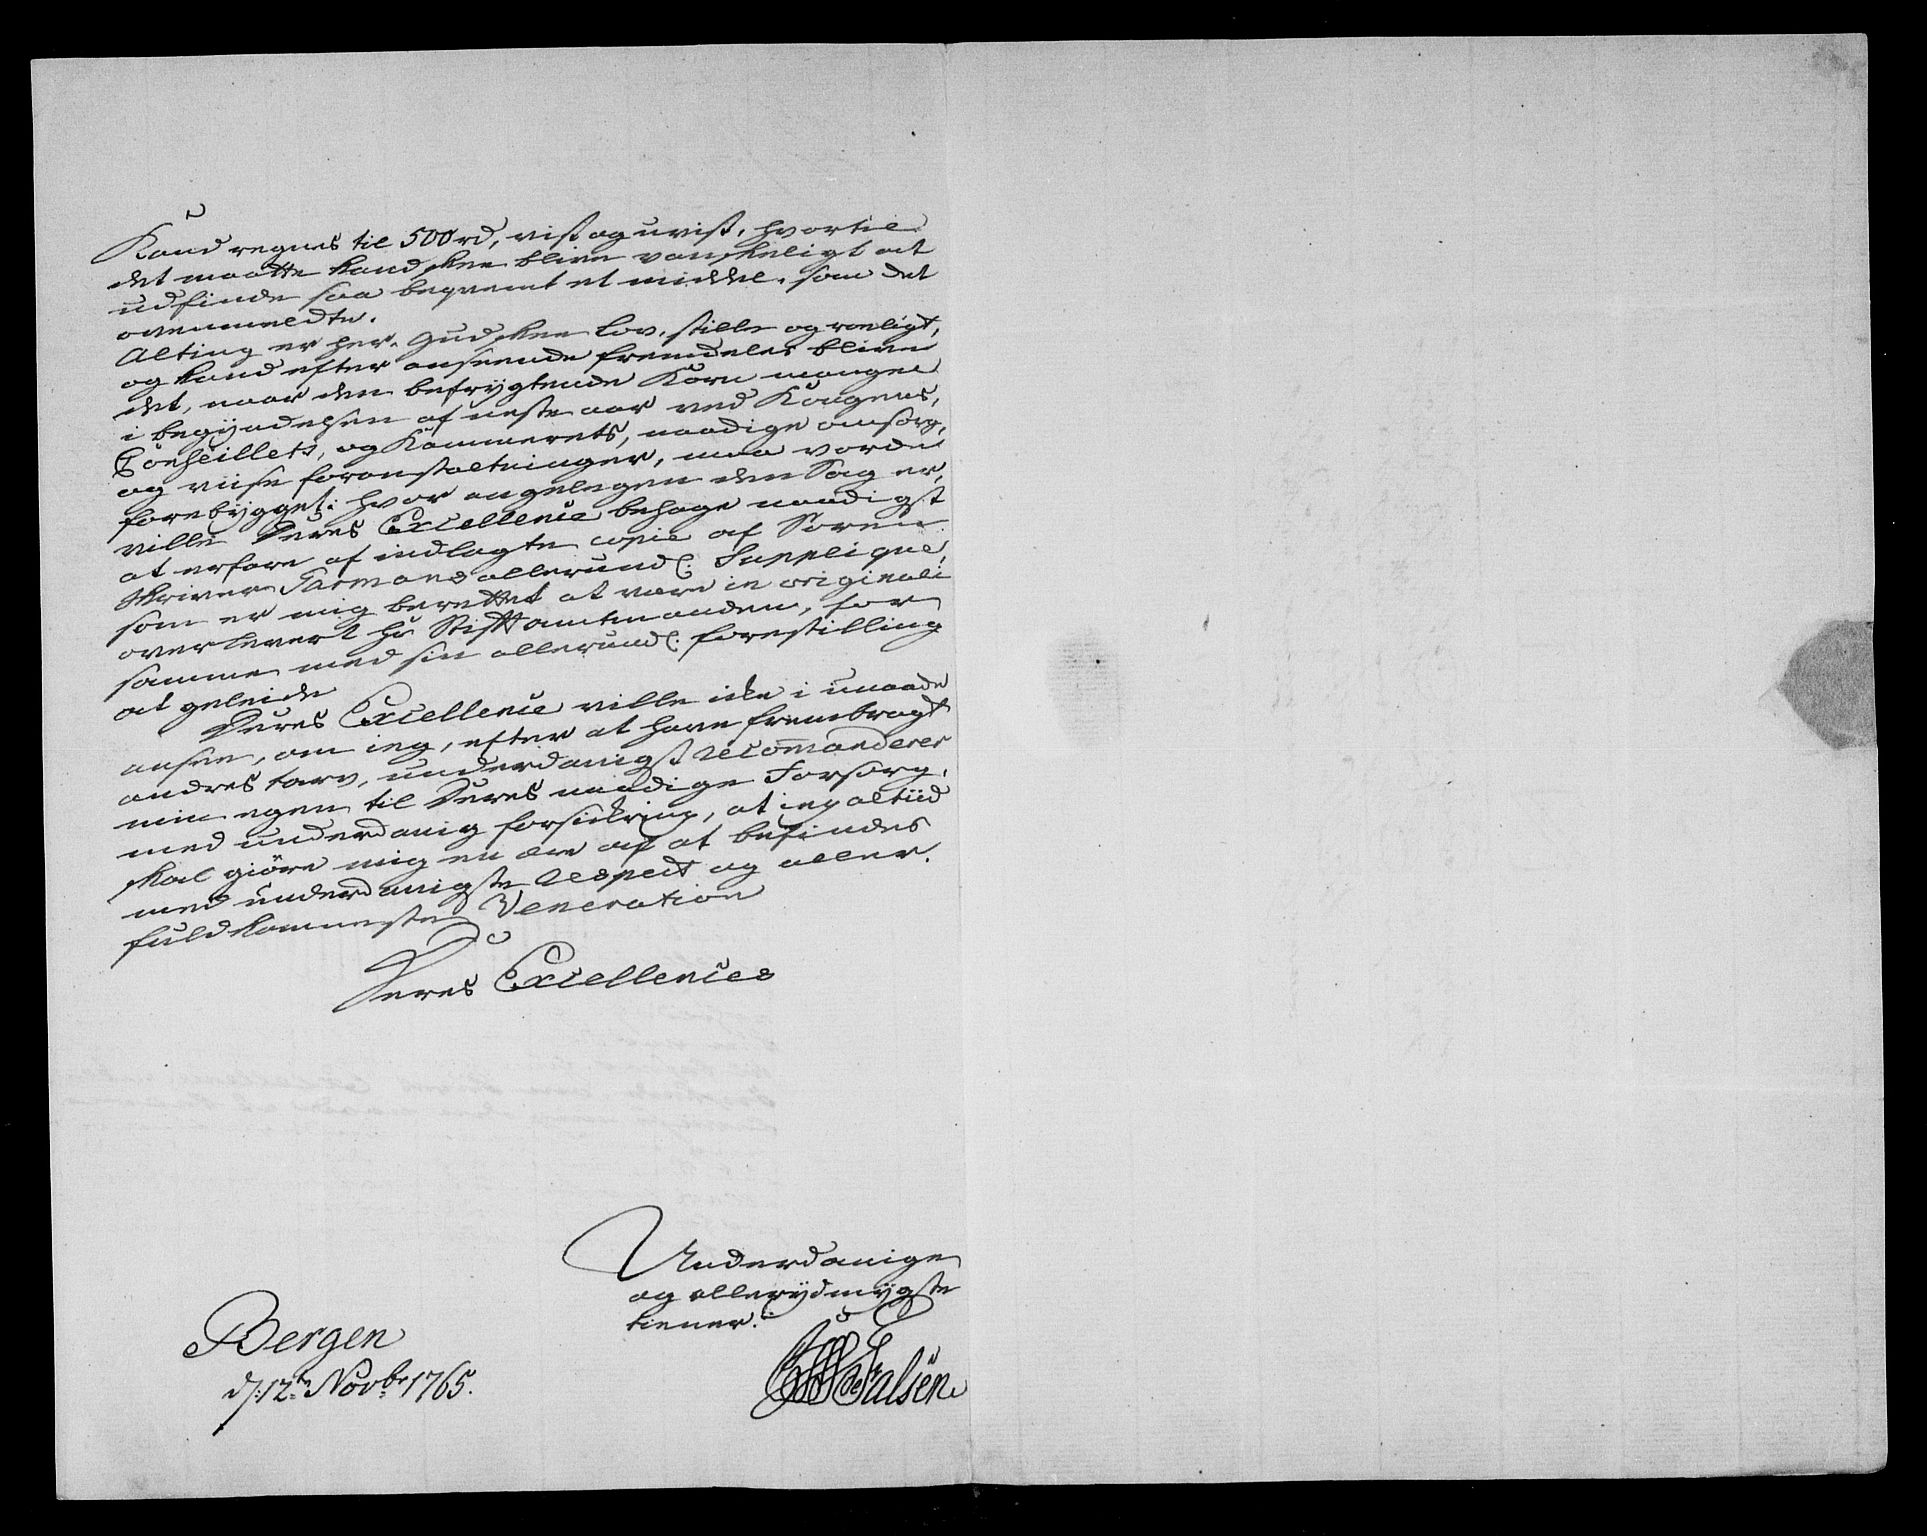 Kand regnes til 500 rd, vist og uvist, hvortil
det maatte kand skee blive vanskeligt at
udfinde saa beqvemt et middel, som det
ovenmeldte.
Alting er her, Gud skee lov, stille og roeligt,
og kand efter anseende fremdeles blive
det, naar den befrygtende Korn mangel
i begyndelsen af neste aar ved Kongens,
Conseillets, og Kammerets, naadige omsorg,
og viise foranstaltninger, maa vorde
forebygget: hvor angelegen den Sag er,
ville Deres Excellence behage naadigst
at erfare af indlagte copie af Soren
skriver Garmans allerund: Supplique,
som er mig berettet at være in originali
overlevert Hr Stiftamtmanden, for
samme med sin allerund: forestilling
at geleide
Deres Excellence ville icke i unaade
ansee, om ieg, efter at have frembragt
andres tarv, underdanigst recommanderer
min egen til Deres naadige Forsorg,
med underdanig forsickring, at ieg altiid
skal giøre mig en ære af at befindes
med underdanigste Respect og aller-
fuldkomneste Veneration
Deres Excellences
Underdanige
og allerydmygste
tiener.
Bergen
d: 12te Novbr 1765.
de Falsen